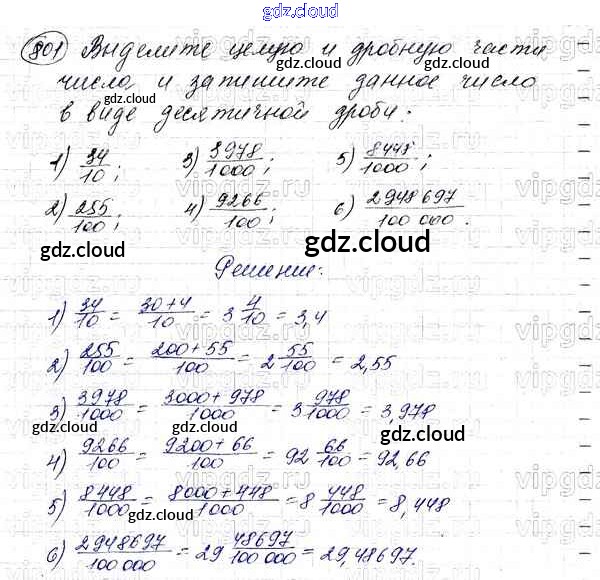 gdz.cloud
801 Выделите целую и дробную части
числа и запишите данное число
в виде десятичной дроби:
1) 34/10; 3) 3978/1000; 5) 8448/1000;
2) 255/100; 4) 9266/100; 6) 2948697/100 000.
gdz.cloud gdz.cloud
Решение:
1) 34/10 = 30+4/10 = 3 4/10 = 3,4
2) 255/100 = 200+55/100 = 2 55/100 = 2,55
3) 3978/1000 = 3000+978/1000 = 3 978/1000 = 3,978
4) 9266/100 = 9200+66/100 = 92 66/100 = 92,66
5) 8448/1000 = 8000+448/1000 = 8 448/1000 = 8,448
6) 2948697/100 000 = 29 48697/100 000 = 29,48697.
gdz.cloud